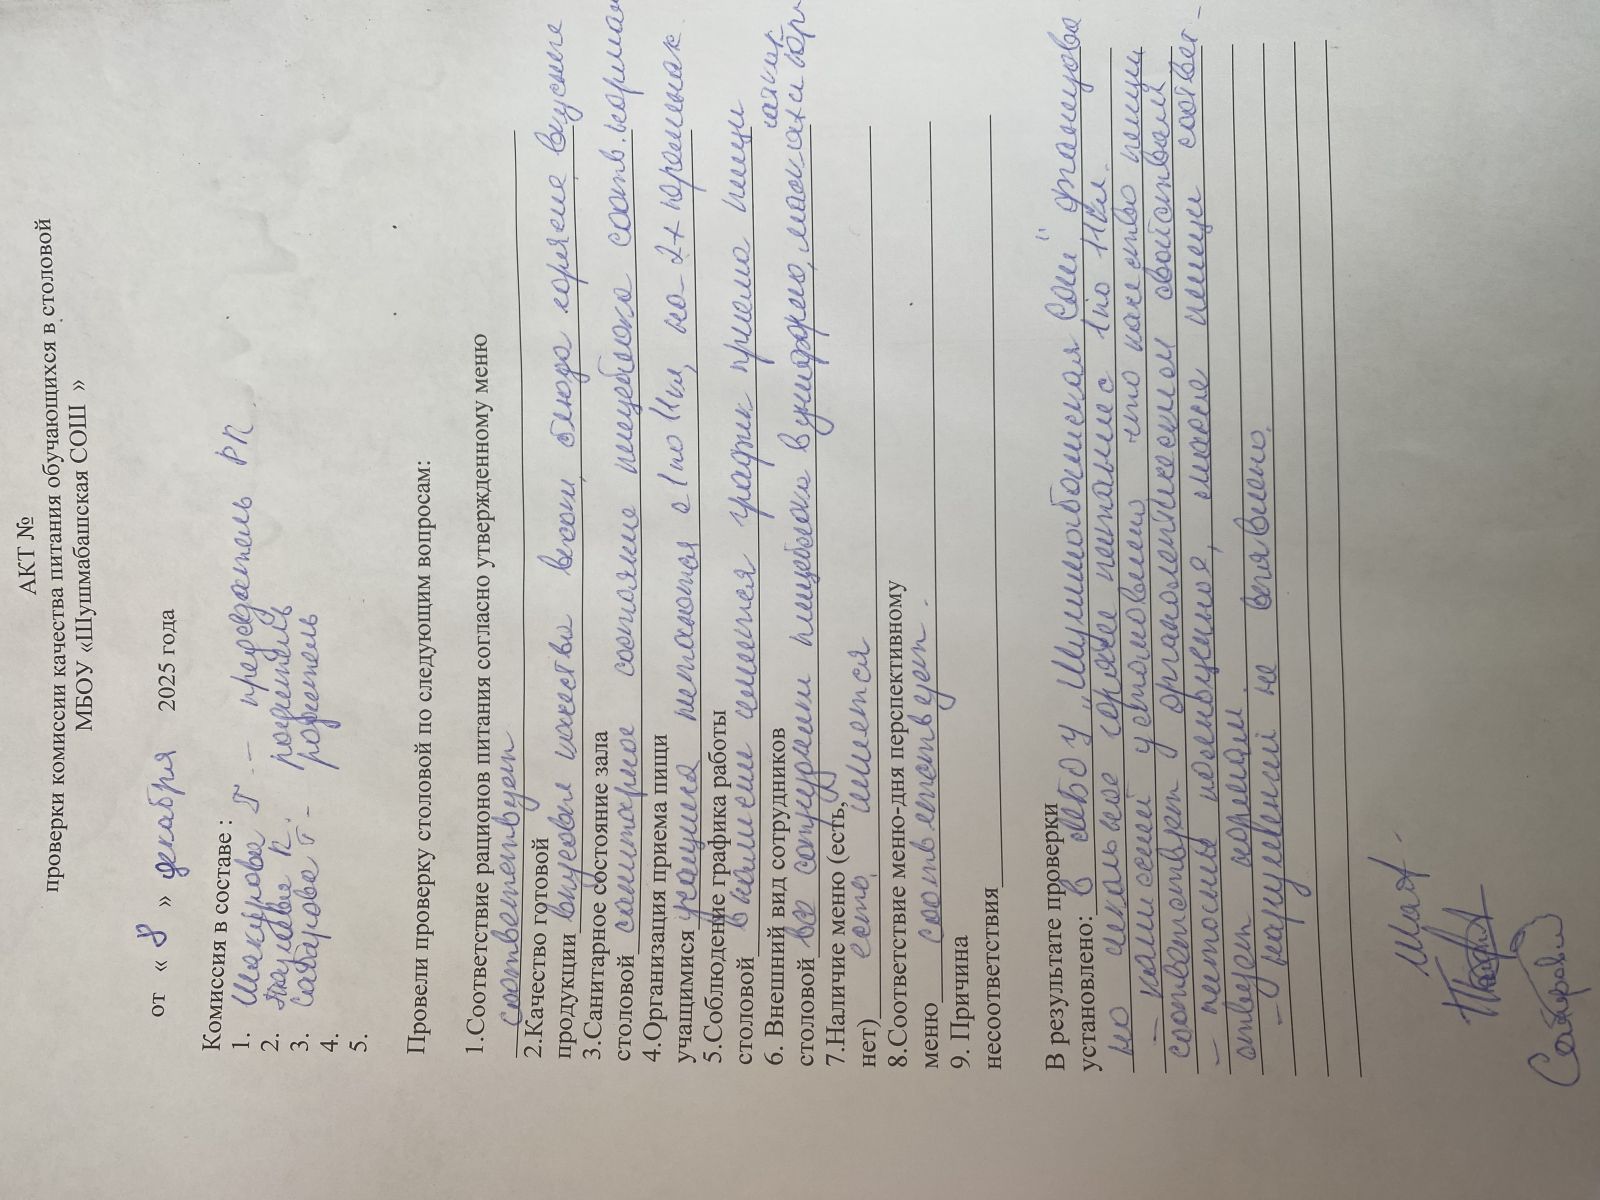 АКТ №
проверки комиссии качества питания обучающихся в столовой
МБОУ «Шушмабашская СОШ »
от « 8 » декабря 2025 года
Комиссия в составе :
1. Шакирова Т - председатель РК.
2. К. родитель
3. Сабирова Г - родитель
4.
5.
Провели проверку столовой по следующим вопросам:
1.Соответствие рационов питания согласно утвержденному меню
соответствует
2.Качество готовой
продукции вкусовые качества высокие, блюда горячие вкусные
3.Санитарное состояние зала
столовой санитарное состояние пищеблока соотв. нормам
4.Организация приема пищи
учащимися учащиеся питаются с 1 по 11 кл, на 2х переменах
5.Соблюдение графика работы
столовой в наличии имеется график приема пищи
6. Внешний вид сотрудников
столовой все сотрудники пищеблока в униформе, маски
7.Наличие меню (есть,
нет) есть, имеется
8.Соответствие меню-дня перспективному
меню соответствует.
9. Причина
несоответствия
В результате проверки
установлено: В МБОУ „Шушмабашская СОШ" организова
но школьное горячее питание с 1 по 11 кл.
- комиссией установлено, что качество пищи
соответствует органолептическим свойствам
- питание, пищи соответ-
ствует нормам.
- нарушений не выявлено.
Сабирова